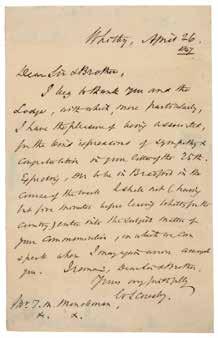 Whitby, April 26
1847
Dear Sir & Brother,
I beg to thank you and the
Lodge, with which, more particularly,
I have the pleasure of being associated,
for the kind expressions of sympathy &
congratulation in your letter of the 25th.
Expecting, to be in Bradford in the
course of the week I shall not (having
but five minutes before leaving Whitby for the
country) enter into the subject matter of
your communication, on which we can
speak when I may again come amongst
you. I remain, Dear Sir & Brother,
Yours very faithfully
W Scoresby
Mr. T. M.
&. &.